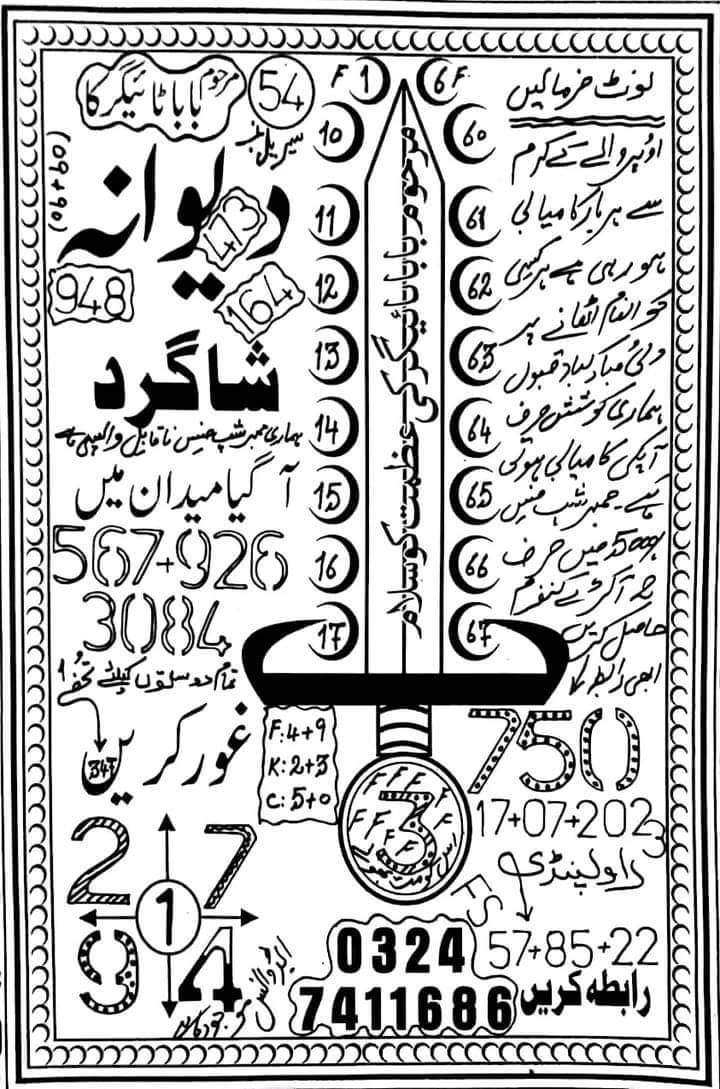 مرحوم
بابا ٹائیگر کا
54
سیریل نمبر
(09+90)
دیوانہ
413
948
164
شاگرد
ہماری ممبر شپ جنس ناقابل واپسی ہے
آ گیا میدان میں
567+926
3084
تمام دوستوں کیلئے تحفہ
347
غور کریں
F 1
10
11
12
13
14
15
16
17
مرحوم بابا ٹائیگر کی عظمت کو سلام
6 F
60
61
62
63
64
65
66
67
نوٹ فرمالیں
اوپر والے کے کرم
سے ہر بار کامیابی
ہو رہی ہے ہر کسی
کو انعام اٹھانے پر
دلی مبارکباد قبول
ہماری کوشش صرف
آپکی کامیابی ہوتی
ہے۔ ممبر شپ فیس
میں صرف
حاصل کریں
ابھی رابطہ
F: 4+9
K: 2+3
C: 5+0
F F F F F F F F F
3
750
17+07+2023
راولپنڈی
FS
57+85+22
2 7
1
9 4
موجود
0324
7411686
رابطہ کریں